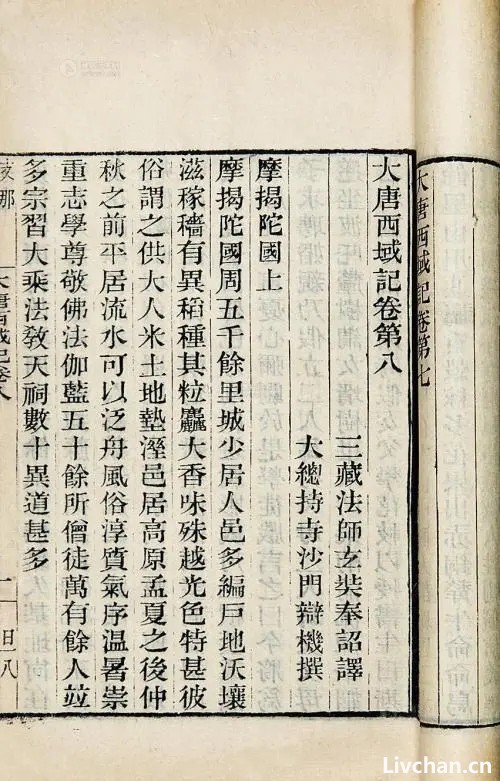 大唐西域記卷第七
大唐西域記卷第八
三藏法師玄奘奉詔譯
大總持寺沙門辯機撰
摩揭陀國上
摩揭陀國周五千餘里城少居人邑多編戶地沃壤
滋稼穡有異稻種其粒麤大香味殊越光色特甚彼
俗謂之供大人米土地墊溼邑居高原孟夏之後仲
秋之前平居流水可以泛舟風俗淳質氣序溫暑崇
重志學尊敬佛法伽藍五十餘所僧徒萬有餘人竝
多宗習大乘法敎天祠數十異道甚多
大唐西域記卷八
Livchan.cn